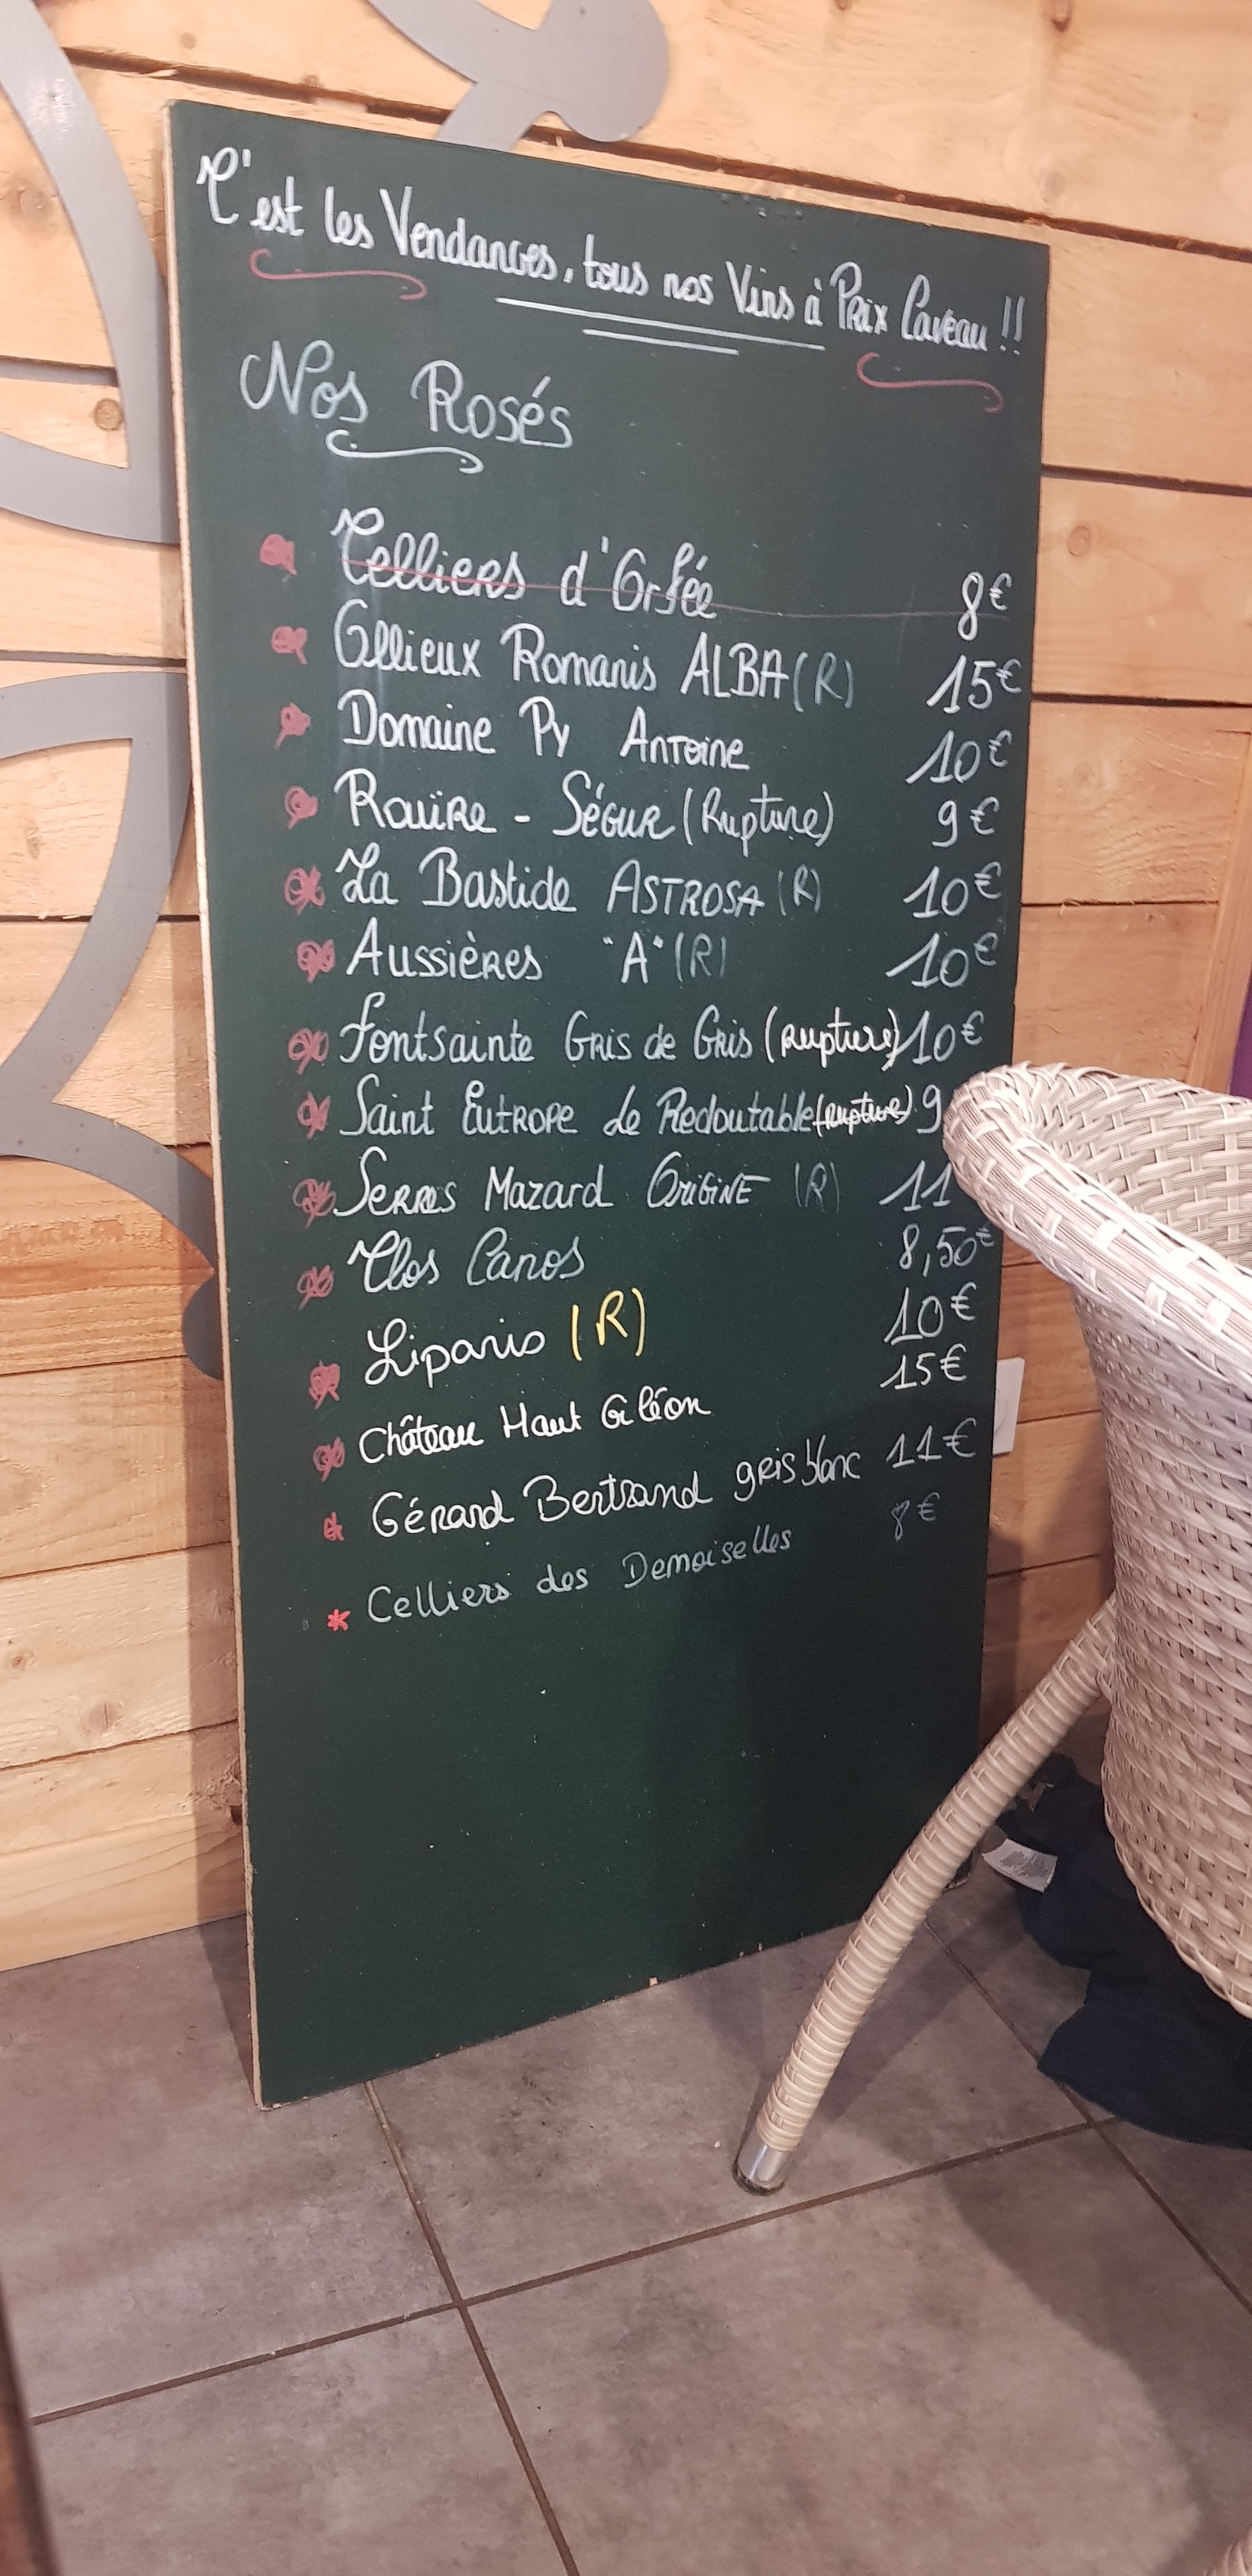 C'est les Vendanges, tous nos Vins à Prix Caveau !!
Nos Rosés
Celliers d'Orfée 8€
Ollieux Romanis ALBA (R) 15€
Domaine Py Antoine 10€
Rouïre - Ségur (Rupture) 9€
La Bastide ASTROSA (R) 10€
Aussières "A" (R) 10€
Fontsainte Gris de Gris (Rupture) 10€
Saint Eutrope de Redoutable (rupture) 9
Serres Mazard ORIGINE (R) 11
Clos Canos 8,50€
Liparis (R) 10€
Château Haut Gléon 15€
Gérard Bertrand gris blanc 11€
Celliers des Demoiselles 8€